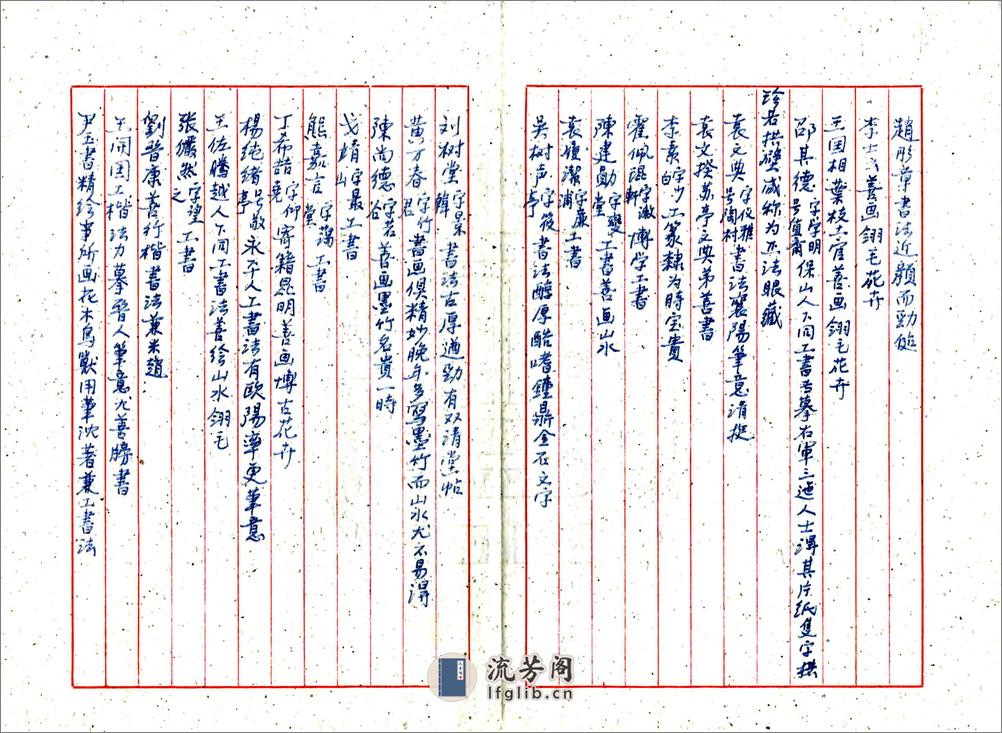 趙彤章書法近顏而勁挺
李士 善画翎毛花卉
王国相葉枝土官善画翎毛花卉
邵其德字学明号寅甫保山人下同工書 摹右軍三迤人士淂其片紙隻字拱
珍若拱璧咸称为正法眼藏
袁文典字仪雅号陶村書法襄陽筆意消挺
袁文揆苏亭文典弟善書
李素字少白工篆隸为時宝贵
霍佩琨字澂軒博学工書
陳建勛字燮堂工書善画山水
袁復潔字廉浦工書
吴树声字筱亭書法醇厚酷嗜鍾鼎金石文字
刘树堂字景韓書法古厚遒勁有双清堂帖
黄才春字竹君書画俱精妙晚年多寫墨竹而山水尤不易淂
陳尚德字若谷善画墨竹名贵一時
戈靖字最山工書
熊嘉言字藹堂工書
丁希喆字仰堯寄籍昆明善画博古花卉
楊纯緒号敬亭永平人工書法有欧陽率更筆意
王佐騰越人下同工書法善绘山水翎毛
張儼然字望之工書
劉晉康善行楷書法兼米趙
王開国工楷法力摹晉人筆意尤善牓書
尹玉書精绘事所画花木鳥獸用筆沈著兼工書法
流芳阁
lfglib.cn